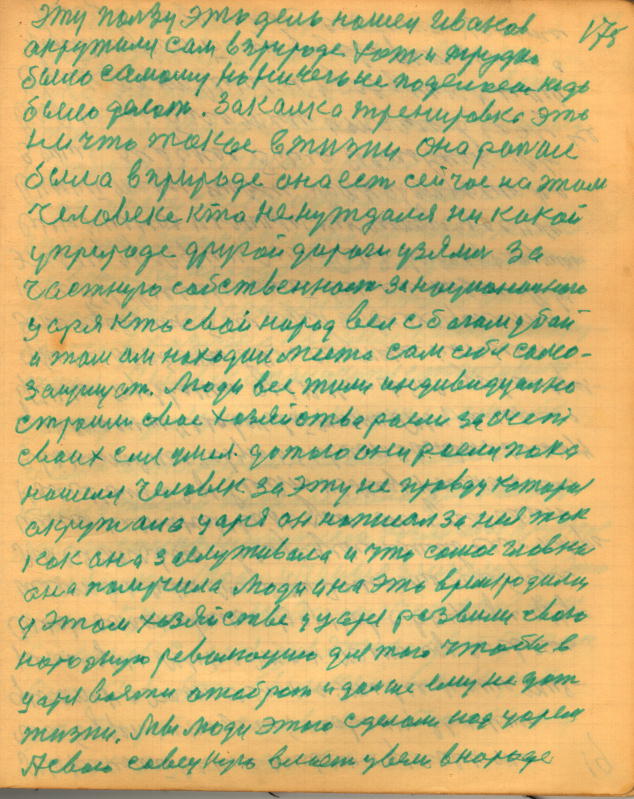 175
эту ползу это дело нашел Иванов
окружили сам в природе хоть и трудно
было самому но ничего не поделаеш надь
было делат. Закалка тренировка это
ни что такое в жизни она раньше
была в природе она ест сейчас на этом
человеке кто не нуждался ни какой
у природе другой дороги узяли за
частную собственност за национального
царя кто свой народ вел с богом у бой
и там он находил место сам себя само-
защищат. Люди все жили индивидуално
строили свое хозяйства расли за счет
своих сил умел. до того они расли пока
нашелся человек за эту не правду которая
окружала царя он написал за нея так
как она заслуживала и что самое главна
она получила люди и на это время родилис
у этом хозяйстве у царя развили свою
народную революцию для того чтобы в
царя взяти отобрат и дальше ему не дат
жизни. Мы люди этого сделали над царем
А свою советскую власт увели в народе